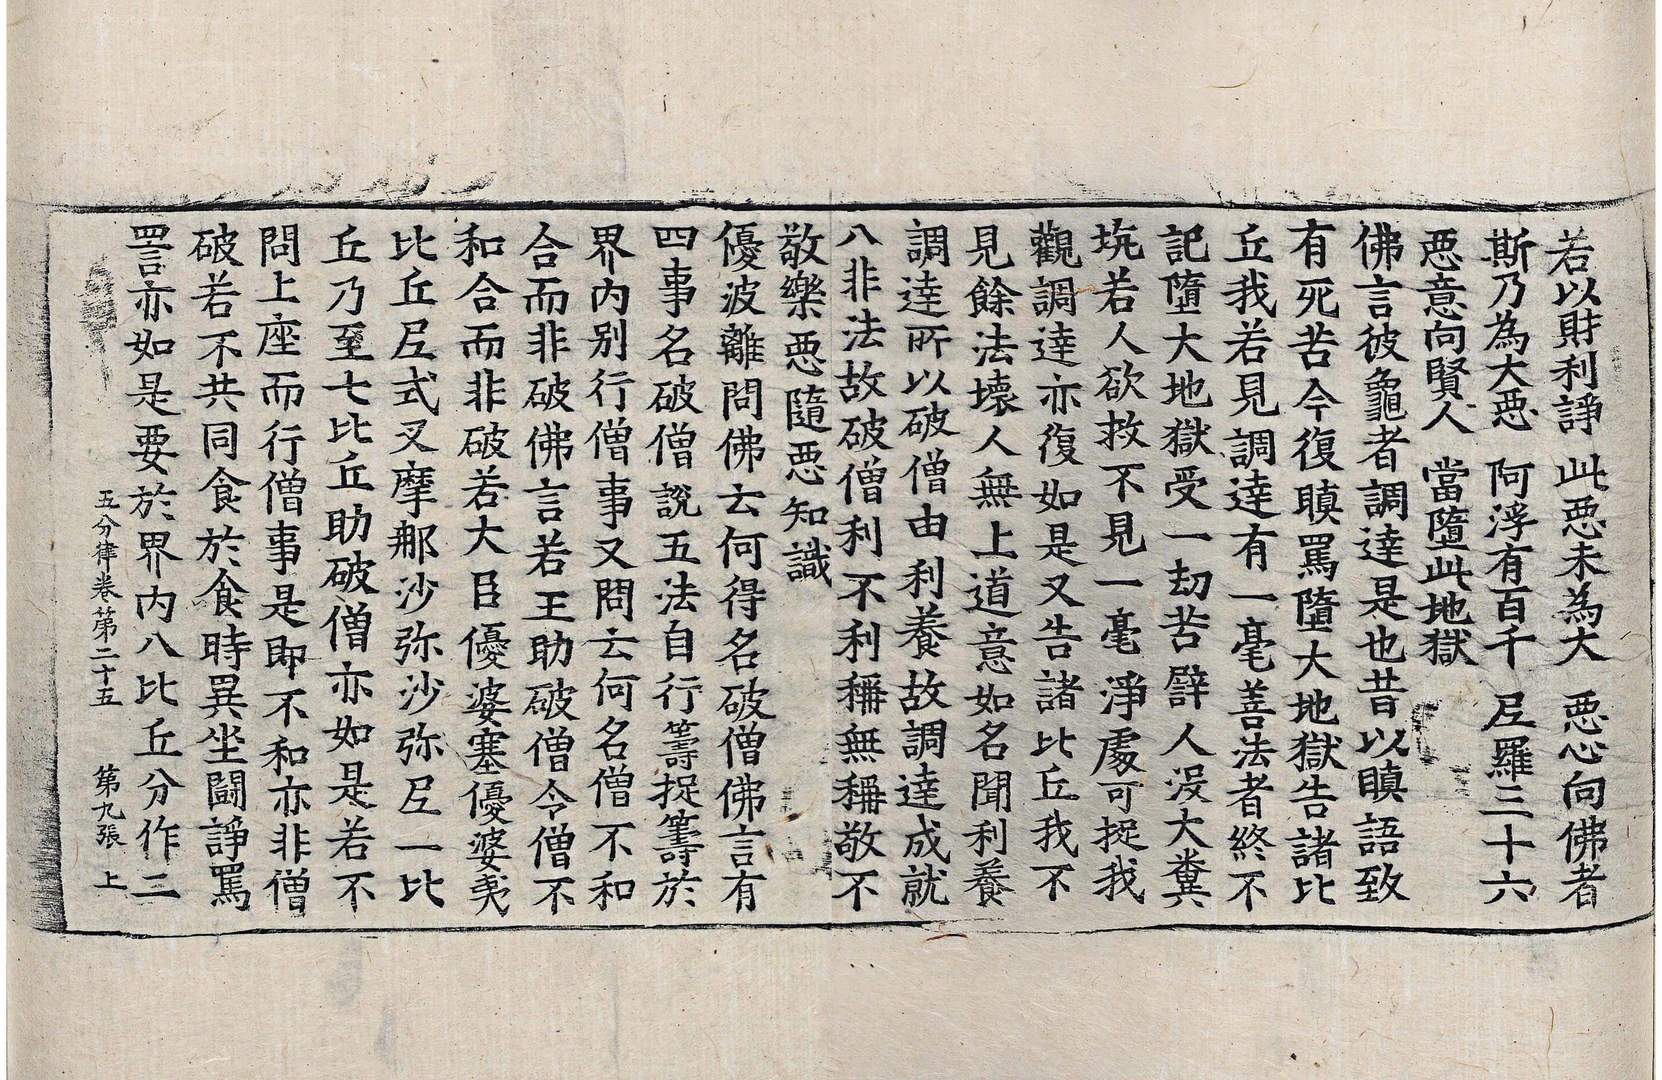 若以財利諍　此惡未為大　惡心向佛者
斯乃為大惡　阿浮有百千　尼羅三十六
惡意向賢人　當墮此地獄
佛言彼龜者調達是也昔以瞋語致
有死苦今復瞋罵墮大地獄告諸比
丘我若見調達有一毫善法者終不
記墮大地獄受一劫苦譬人没大糞
坑若人欲救不見一毫淨處可捉我
觀調達亦復如是又告諸比丘我不
見餘法壞人無上道意如名聞利養
調達所以破僧由利養故調達成就
八非法故破僧利不利稱無稱敬不
敬樂惡隨惡知識
優波離問佛云何得名破僧佛言有
四事名破僧說五法自行籌捉籌於
界內别行僧事又問云何名僧不和
合而非破佛言若王助破僧令僧不
和合而非破若大臣優婆塞優婆夷
比丘尼式叉摩那沙弥沙弥尼一比
丘乃至七比丘助破僧亦如是若不
問上座而行僧事是即不和亦非僧
破若不共同食於食時異坐鬪諍罵
詈亦如是要於界內八比丘分作三
五分律卷第二十五　第九張　上